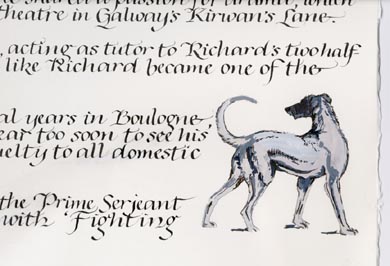 he shared a passion for drama, which
theatre in Galway's Kirwan's Lane.
, acting as tutor to Richard's two half
like Richard became one of the
al years in Boulogne,
ear too soon to see his
uelty to all domestic
the Prime Serjeant
with 'Fighting